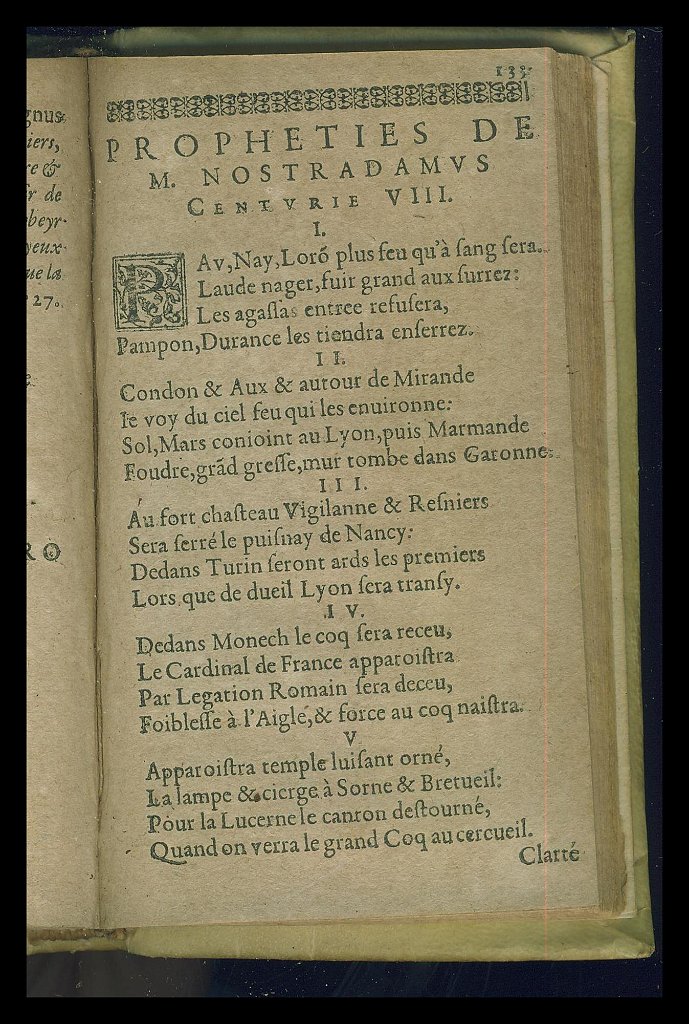 gnus
iers,
re &
r de
beyr-
yeux
ue la
27.
RO
135
PROPHETIES DE
M. NOSTRADAMVS
CENTVRIE VIII.
I.
PAv,Nay,Lorõ plus feu qu'à ſang ſera.
Laude nager,fuir grand aux ſurrez:
Les agaſſas entree refuſera,
Pampon,Durance les tiendra enſerrez.
II.
Condon & Aux & autour de Mirande
Ie voy du ciel feu qui les enuironne:
Sol,Mars conioint au Lyon,puis Marmande
Foudre,grãd greſſe,mur tombe dans Garonne.
III.
Au fort chaſteau Vigilanne & Reſniers
Sera ſerré le puiſnay de Nancy:
Dedans Turin ſeront ards les premiers
Lors que de dueil Lyon ſera tranſy.
IV.
Dedans Monech le coq ſera receu,
Le Cardinal de France apparoiſtra
Par Legation Romain ſera deceu,
Foibleſſe à l'Aigle,& force au coq naiſtra.
V
Apparoiſtra temple luiſant orné,
La lampe & cierge à Sorne & Bretueil:
Pour la Lucerne le canton deſtourné,
Quand on verra le grand Coq au cercueil.
Clarté